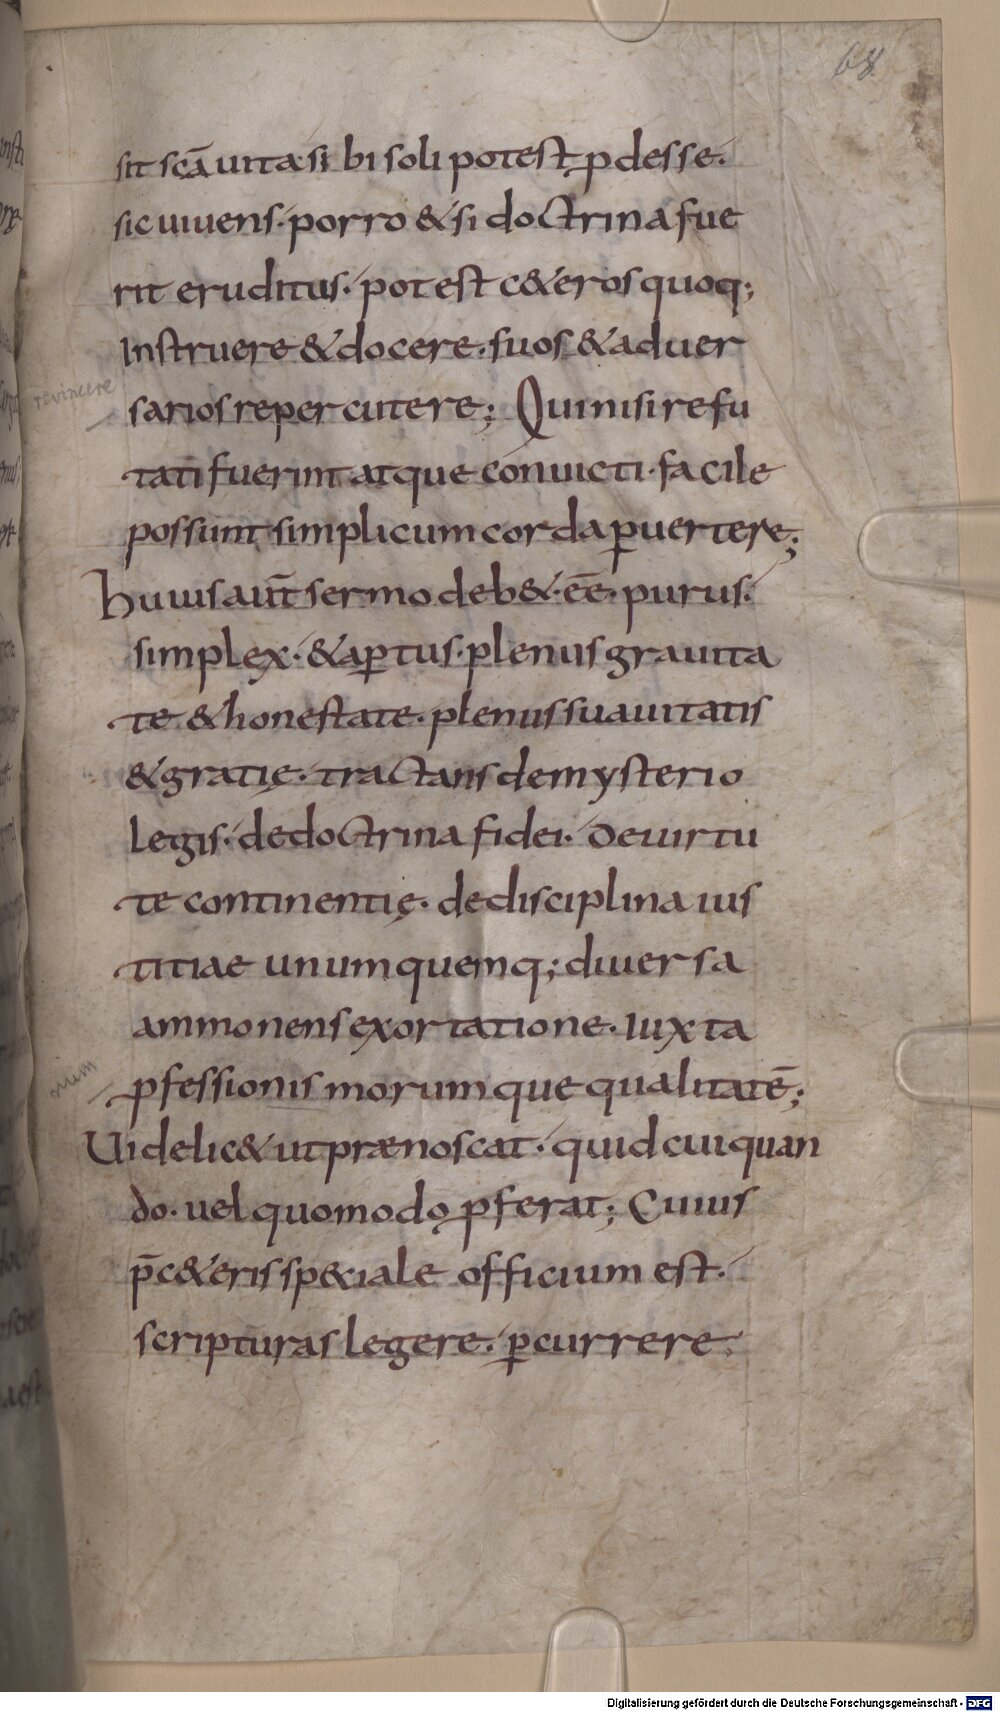 68
sit scā uita· sibi soli potest ꝓdesse·
sic uiuens· porro & si doctrina fue
rit eruditus· potest c&eros quoq;
Instruere & docere· suos & aduer
revincere
sarios repercutere; Qui nisi refu
tati fuerint atque conuicti· facile
possunt simplicum corda ꝑuertere;
huius aut̄ sermo deb& ēē· purus·
simplex· & aꝑtus· plenus grauita
te & honestate· plenus suauitatis
& gratię· tractans de mysterio
legis· de doctrina fidei· De uirtu
te continentię· de disciplina ius
titiae unumquemq; diuersa
ammonens exortatione· Iuxta
num
ꝓfessionis morumque qualitatē;
Uidelic& ut prænoscat· quid cui quan
do· uel quomodo ꝓferat; Cuius
p̄ c&eris sp&iale officium est·
scripturas legere· ꝑcurrere
Digitalisierung gefördert durch die Deutsche Forschungsgemeinschaft - DFG